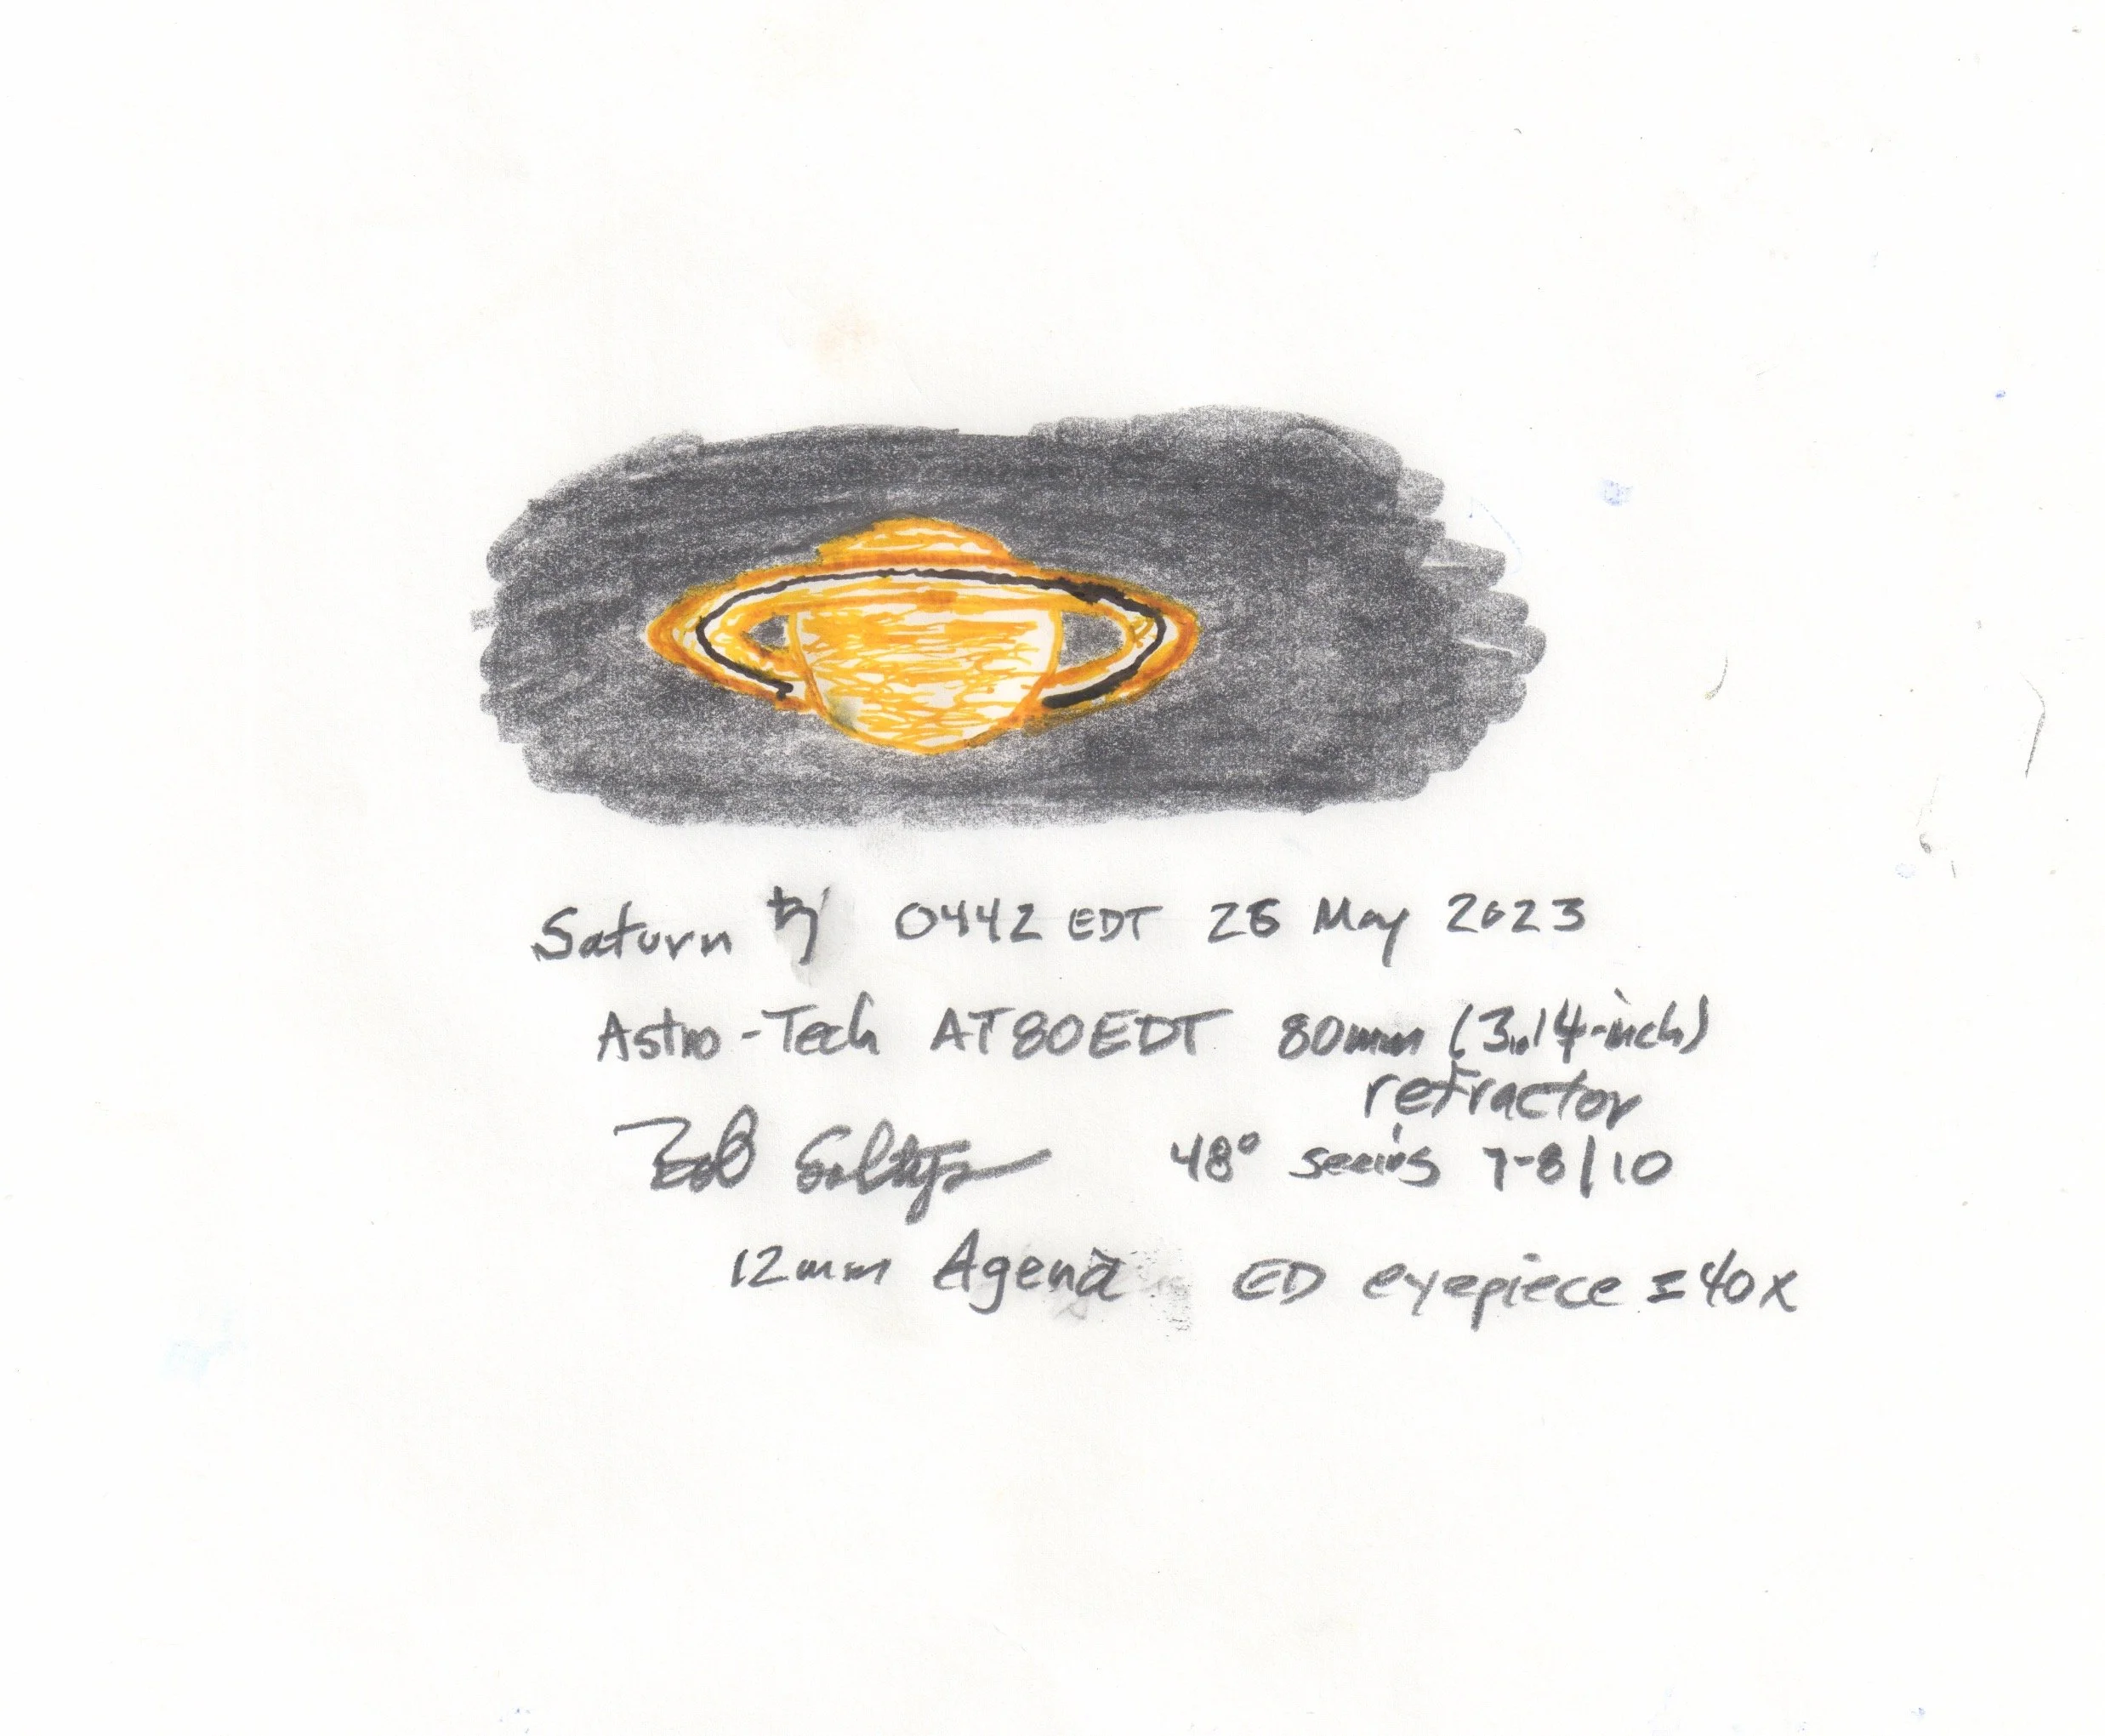 Saturn ♄ 0442 EDT May 2023
Astro-Tech AT80EDT 80mm (3.14-inch)
refractor
Bob Soltys 48° seeing 7-8/10
12mm Agena ED eyepiece = 40x